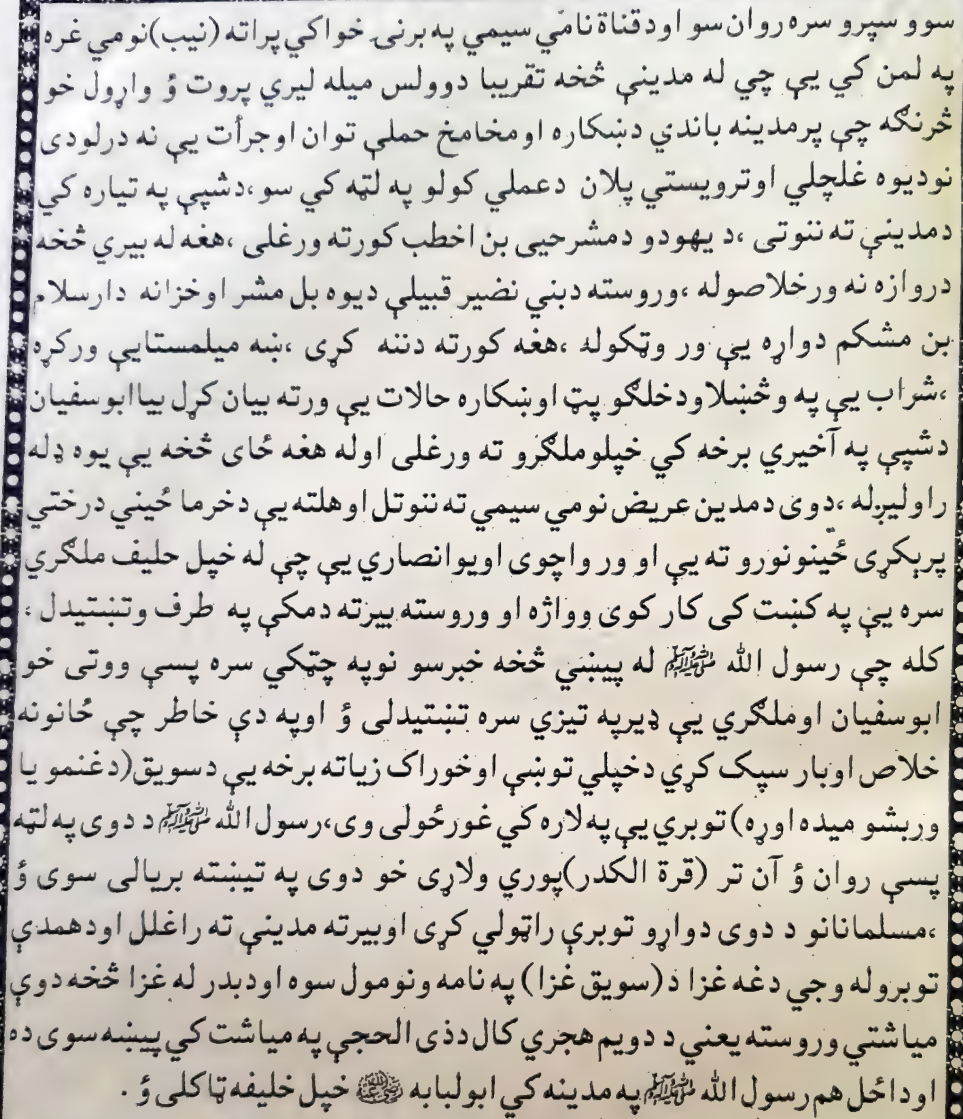 سوو سپرو سره روان سو اودقناة نامي سيمي په برنۍ خواکي پراته (نيب)نومي غره
په لمن کي يې چي له مدينې څخه تقريبا دوولس ميله ليري پروت ؤ واړول خو
څرنګه چي پرمدينه باندي دښکاره اومخامخ حملې توان اوجرأت يې نه درلودی
نوديوه غلچلي اوترويستي پلان دعملي کولو په لټه کي سو ،دشپې په تياره کي
دمدينې ته ننوتی ،د يهودو دمشرحيی بن اخطب کورته ورغلی ،هغه له بيري څخه
دروازه نه ورخلاصوله ،وروسته دبني نضير قبيلې ديوه بل مشر اوخزانه دارسلام
بن مشکم دواړه يې ور وټکوله ،هغه کورته دننه کړی ،ښه ميلمستيايې ورکړه
،شراب يې په وڅښلاودخلګو پټ اوښکاره حالات يې ورته بيان کړل بياابوسفيان
دشپې په آخيري برخه کي خپلوملګرو ته ورغلی اوله هغه ځای څخه يې يوه ډله
راوليږله ،دوی دمدين عريض نومي سيمي ته ننوتل اوهلته يې دخرما ځيني درختي
پرېکړی ځينونورو ته يې او ور واچوی اويوانصاري يې چي له خپل حليف ملګري
سره يې په کښت کی کار کوی وواژه او وروسته بيرته دمکې په طرف وتښتيدل ،
کله چي رسول الله ﷺ له پيښي څخه خبرسو نوپه چټکي سره پسې ووتی خو
ابوسفيان اوملګري يې ډيرپه تيزي سره تښتيدلی ؤ اوپه دې خاطر چي ځانونه
خلاص اوبار سپک کړي دخپلي توښې اوخوراک زياته برخه يې دسويق(دغنمو يا
وربشو ميده اوړه) توبري يې په لاره کي غورځولی وی،رسول الله ﷺ د دوی په لټه
پسې روان ؤ آن تر (قرة الکدر)پوري ولاړی خو دوی په تيښته بريالی سوی ؤ
،مسلمانانو د دوی دواړو توبرې راټولي کړی اوبيرته مدينې ته راغلل اودهمدې
توبروله وجي دغه غزا د(سويق غزا) په نامه ونومول سوه اودبدر له غزا څخه دوې
مياشتي وروسته يعني د دويم هجري کال دذی الحجې په مياشت کي پيښه سوی ده
اوداځل هم رسول الله ﷺ په مدينه کي ابولبابه رضي الله عنه خپل خليفه ټاکلی ؤ .